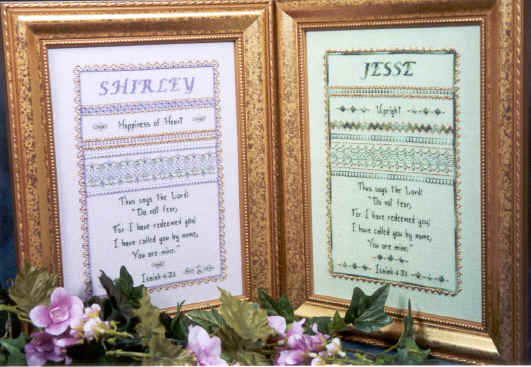 SHIRLEY
Happiness of Heart
Thus says the Lord:
"Do not fear,
For I have redeemed you;
I have called you by name,
You are mine."
Isaiah 43:1
JESSE
Upright
Thus says the Lord:
"Do not fear,
For I have redeemed you;
I have called you by name,
You are mine."
Isaiah 43:1